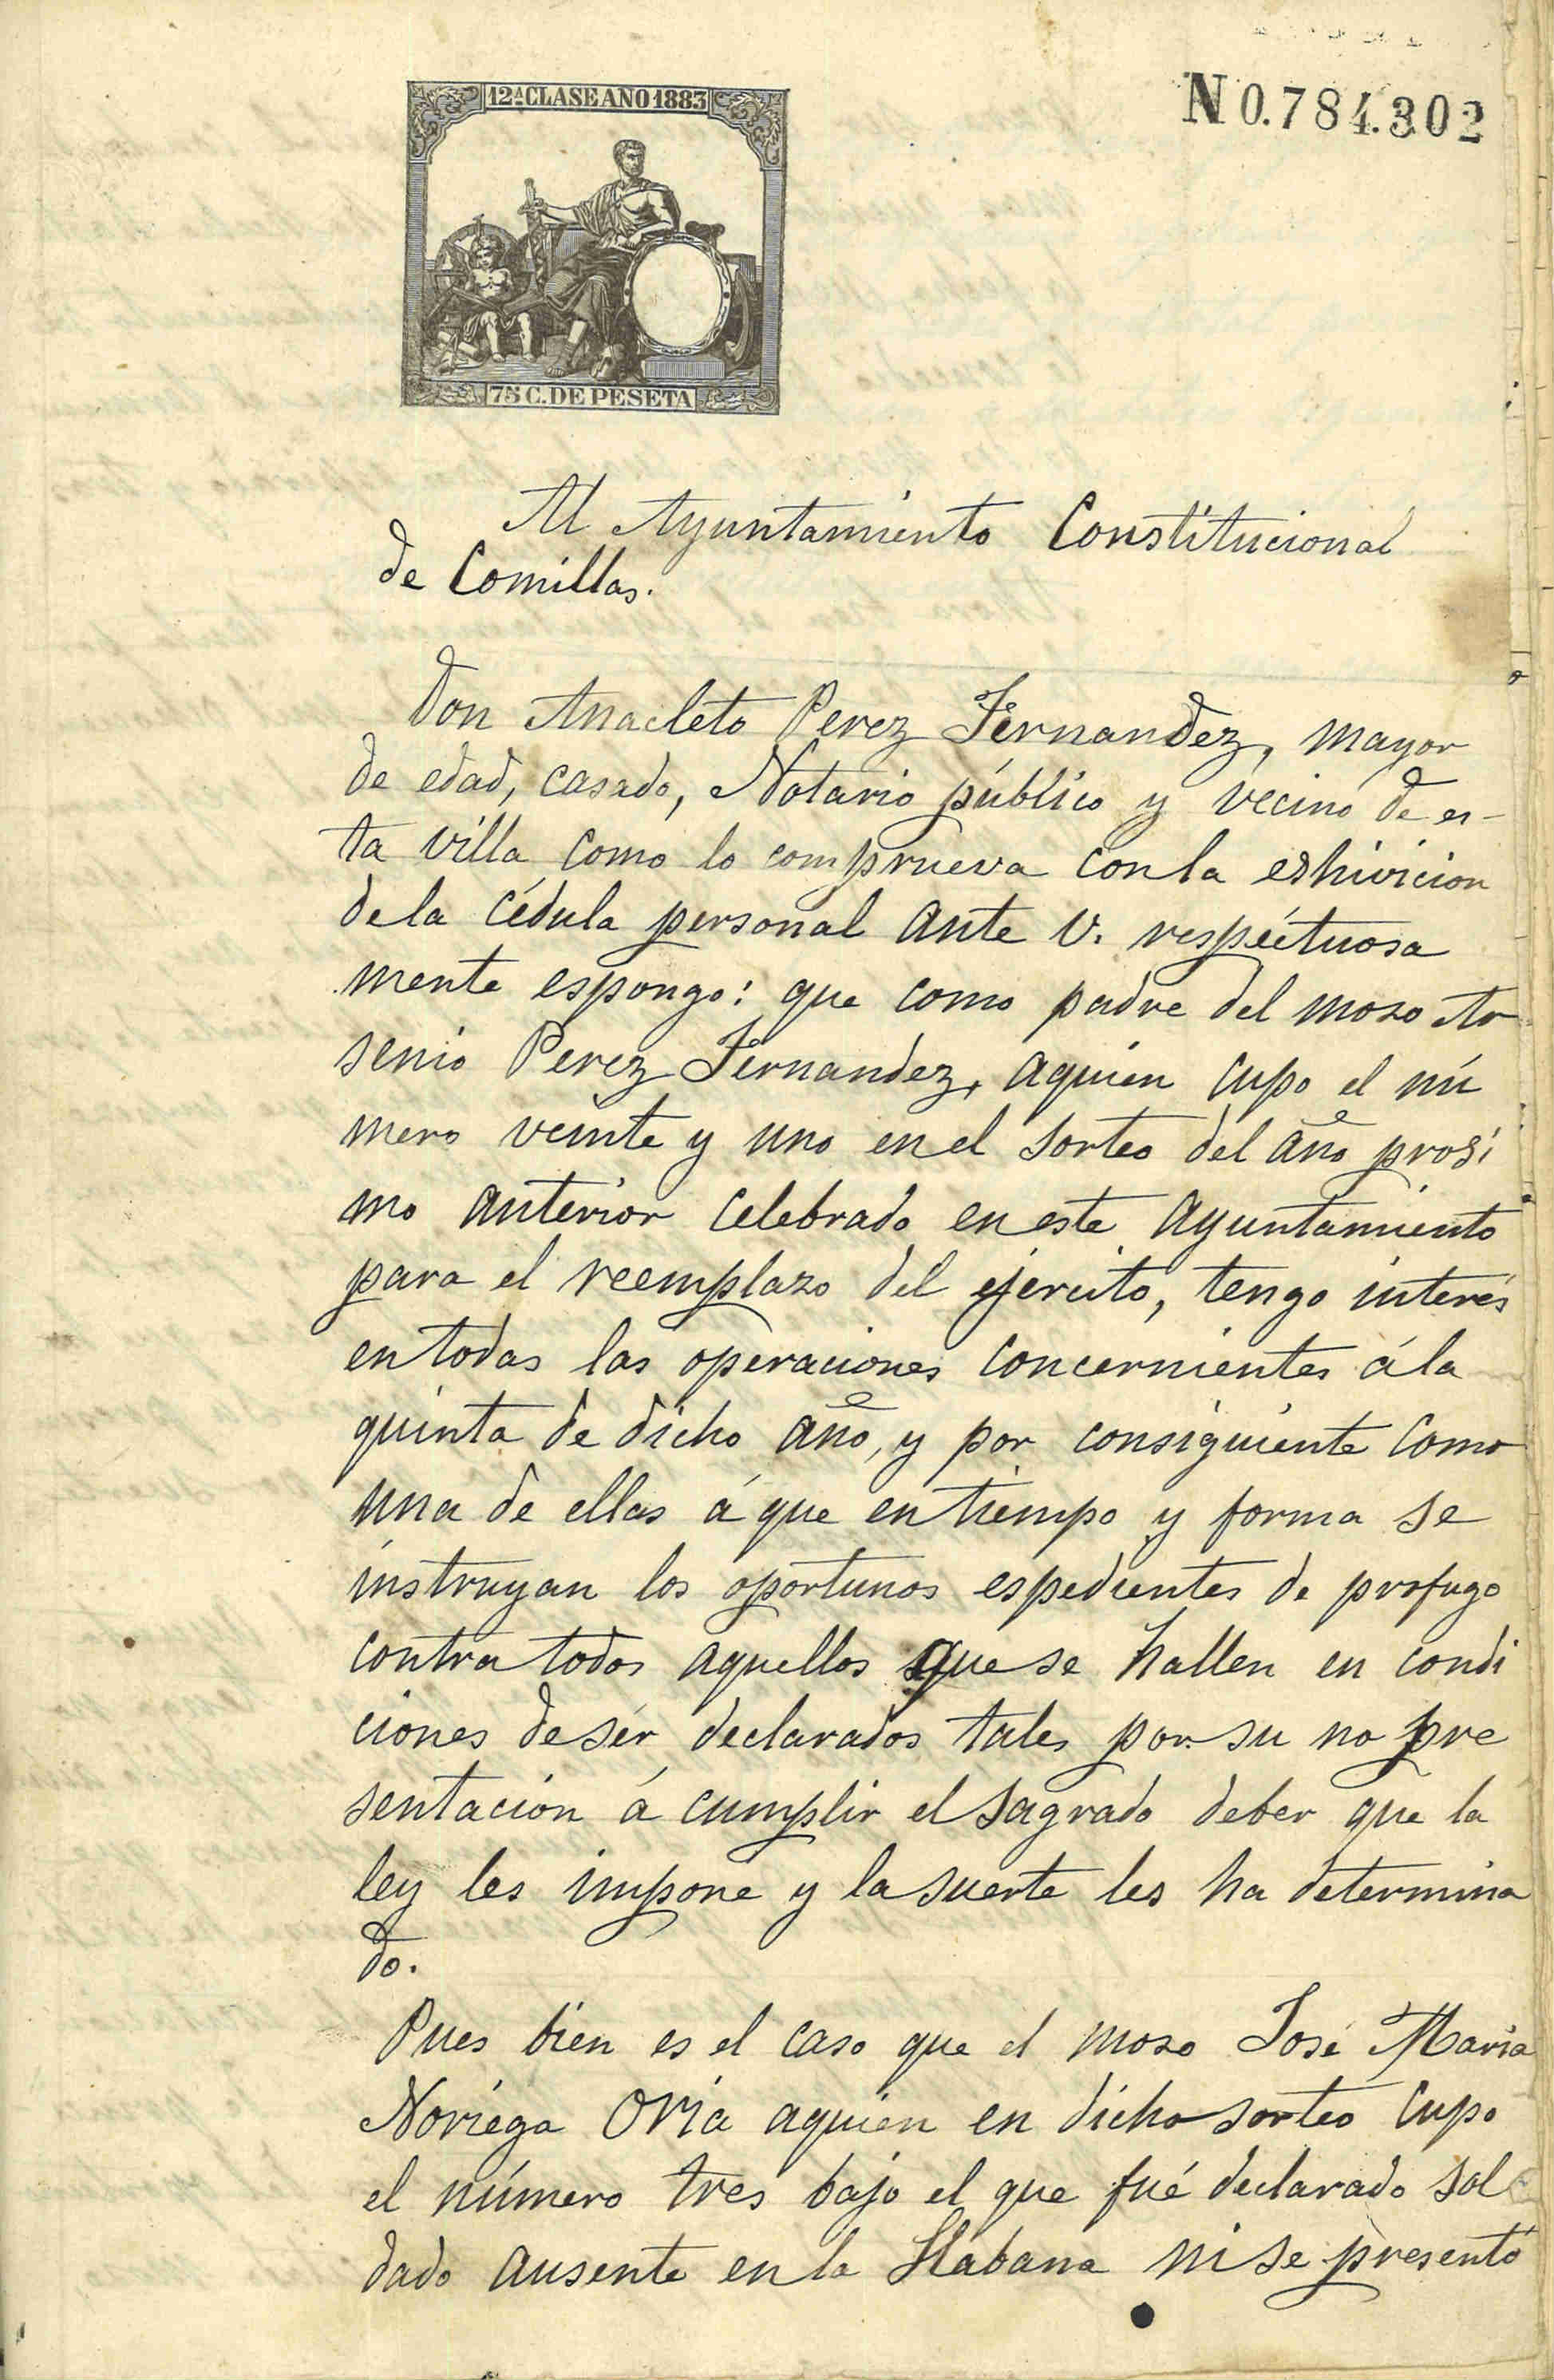 12ª CLASE AÑO 1883
N 0.784.302
75 C. DE PESETA
Al Ayuntamiento Constitucional
de Comillas.
Don Anacleto Perez Fernandez, mayor
de edad, casado, Notario público y vecino de es-
ta villa como lo comprueva con la eshivicion
de la cédula personal ante V. respéctuosa
mente espongo: que como padre del moso Ar
senio Perez Fernandez, aquien cupo el nú
mero veinte y uno en el sorteo del año prosi
mo anterior celebrado en este Ayuntamiento
para el reemplazo del ejercito, tengo interés
en todas las operaciones concernientes á la
quinta de dicho año, y por consiguiente como
una de ellas á que en tiempo y forma se
instruyan los oportunos espedientes de profugo
contra todos aquellos que se hallen en condi
ciones de sér declarados tales por su no pre
sentación á cumplir el sagrado deber que la
ley les impone y la suerte les ha determina
do.
Pues bien es el caso que el moso José Maria
Noriega Oria aquien en dicho sorteo cupo
el número tres bajo el que fué declarado sol
dado ausente en la Habana ni se presentó